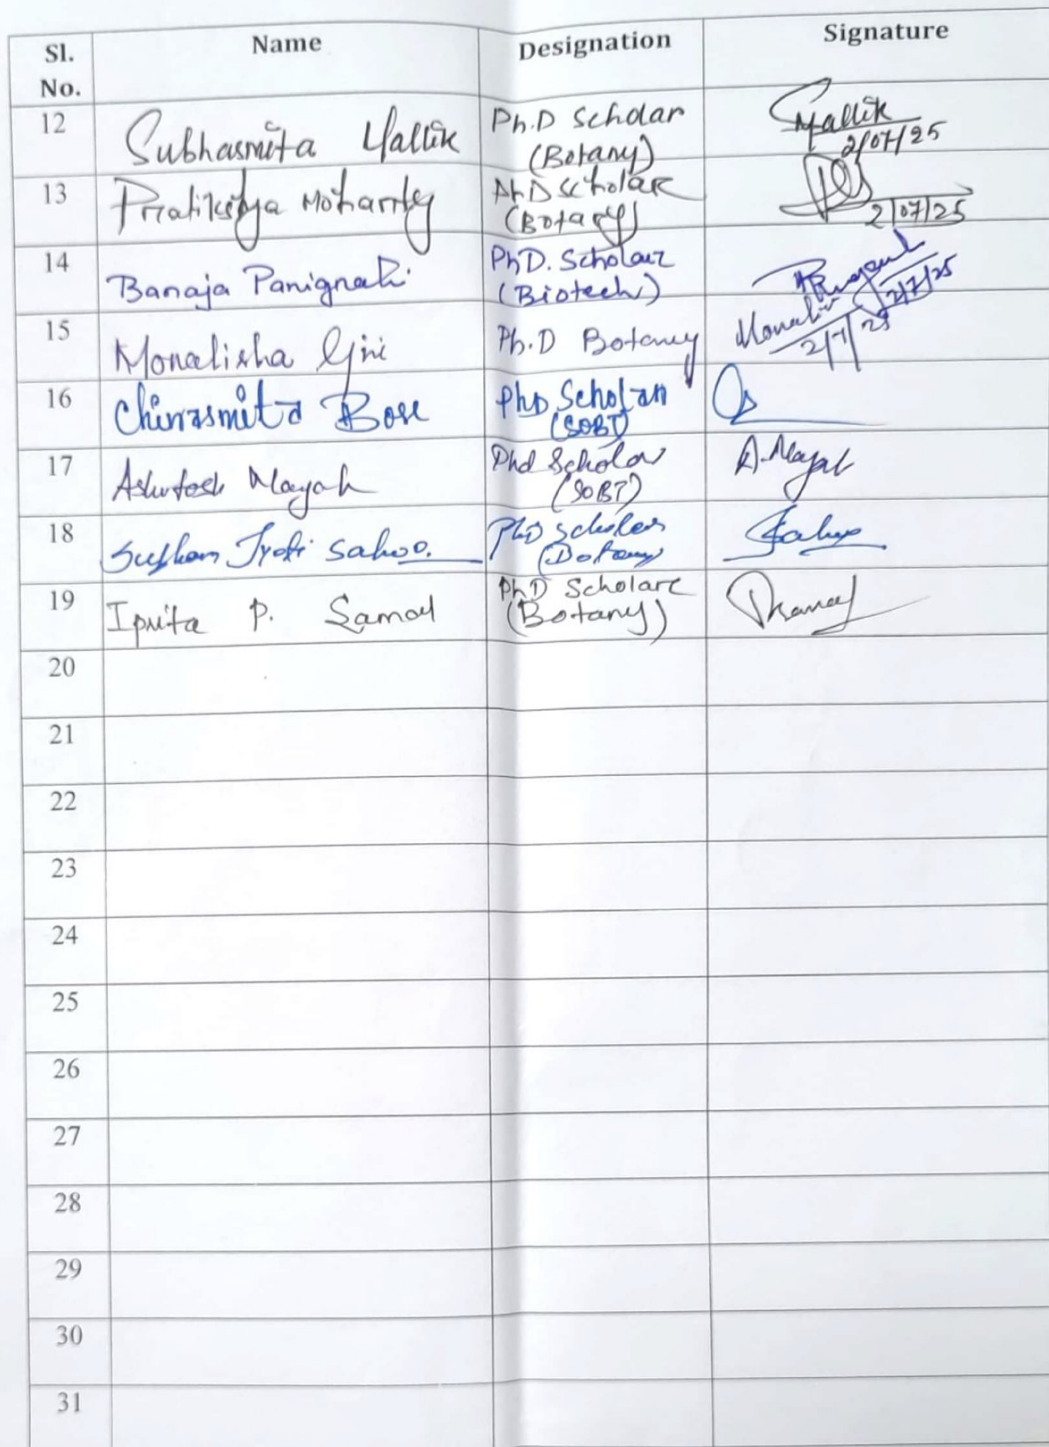 Sl. No. Name Designation Signature
12 Subhasmita Mallik Ph.D Scholar (Botany) SMallik 2/07/25
13 Pratikshya Mohanty Ph.D scholar (Botany) 2/07/25
14 Banaja Panigrahi PhD. Scholar (Biotech) 2/7/25
15 Monalisha Giri Ph.D Botany Monalisha 2/7/25
16 Chinmasmita Bose PhD Scholar (SOBT)
17 Ashutosh Nayak Phd Scholar (SOBT) A.Nayak
18 Jyoti Sahoo. PhD scholar (Botany) Sahoo
19 Ipsita P. Samal PhD Scholar (Botany)
20
21
22
23
24
25
26
27
28
29
30
31